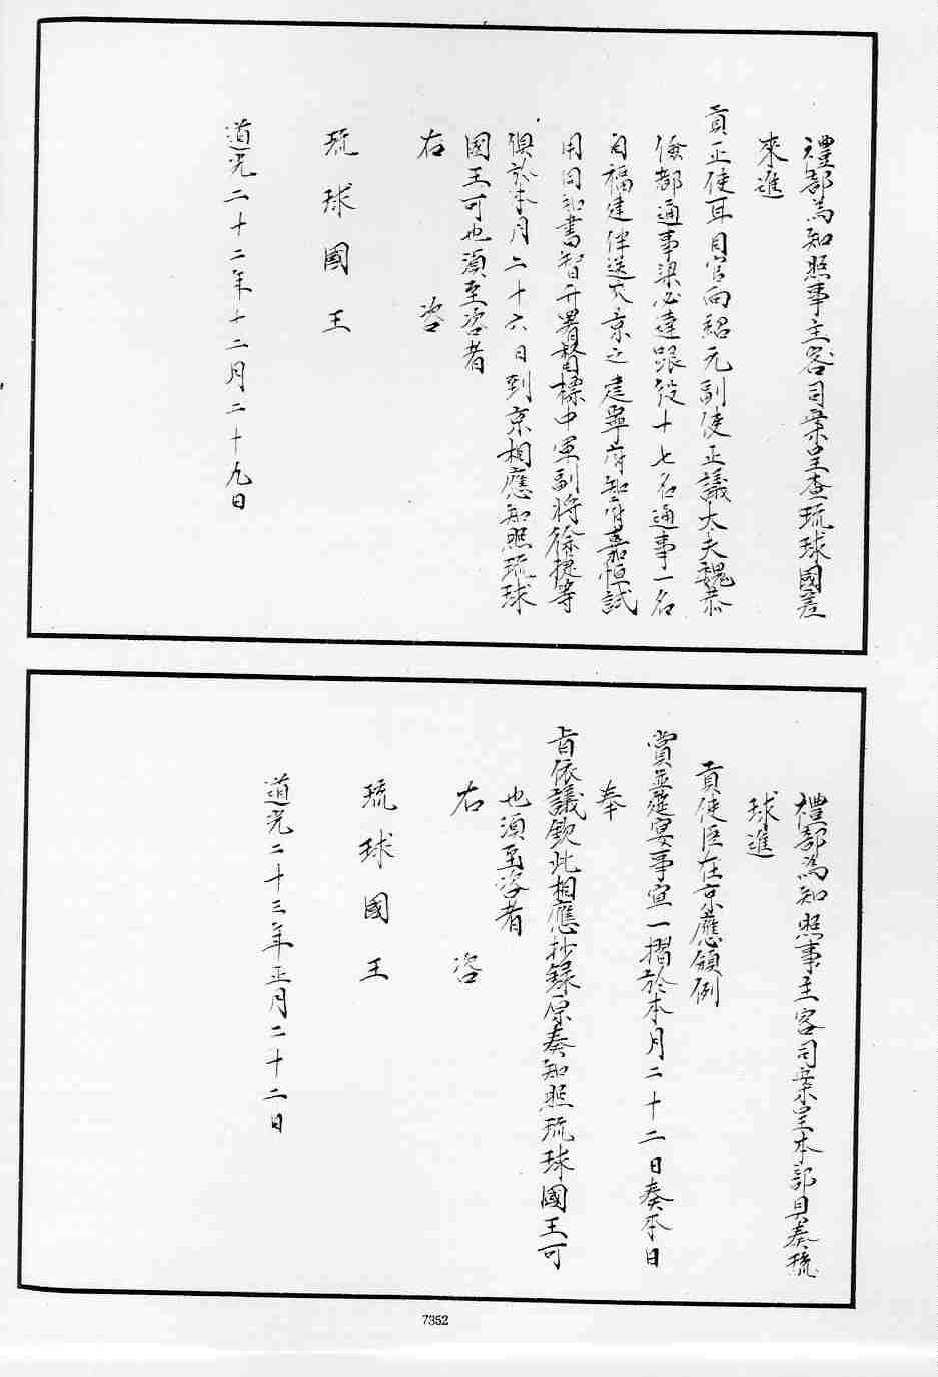 禮部為知照事主客司案呈查琉球國差
來進
貢正使耳目官向紹元副使正議大夫魏恭
儉都通事梁必達跟役十七名通事一名
自福建伴送來京之建寧府知府嘉恒試
用同知書智升署督標中軍副將徐捷等
俱於本月二十六日到京相應知照琉球
國王可也須至咨者
右 咨
琉球國王
道光二十二年十二月二十九日
禮部為知照事主客司案呈本部具奏琉
球進
貢使臣在京應領例
賞並筵宴事宜一摺於本月二十二日奏本日
奉
旨依議欽此相應抄錄原奏知照琉球國王可
也須至咨者
右 咨
琉球國王
道光二十三年正月二十二日
7352